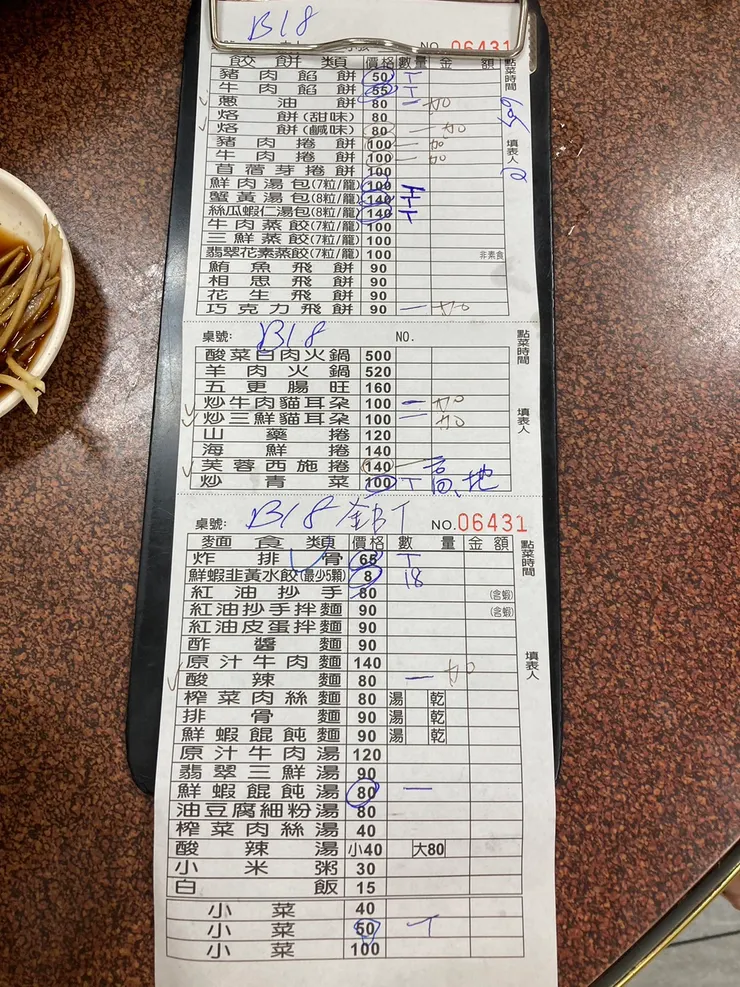 B18
NO. 06431
餃餅類 價格 數量 金額 點菜時間
豬肉餡餅 50 T
牛肉餡餅 55 T
605
蔥油餅 80 一 加
烙餅(甜味) 80
烙餅(鹹味) 80 一 加
填表人
豬肉捲餅 100 一 加
牛肉捲餅 100 一 加
苜蓿芽捲餅 100
鮮肉湯包(7粒/籠) 100
蟹黃湯包(8粒/籠) 140
絲瓜蝦仁湯包(8粒/籠) 140 T
牛肉蒸餃(7粒/籠) 100
三鮮蒸餃(7粒/籠) 100
翡翠花素蒸餃(7粒/籠) 100 非素食
鮪魚飛餅 90
相思飛餅 90
花生飛餅 90
巧克力飛餅 90 一 加
桌號: B18 NO. 點菜時間
酸菜白肉火鍋 500
羊肉火鍋 520
五更腸旺 160
炒牛肉貓耳朵 100 一 加
炒三鮮貓耳朵 100 一 加
填表人
山藥捲 120
海鮮捲 140
芙蓉西施捲 140 一
炒青菜 100 T 高地
桌號: B18 NO.06431
麵食類 價格 數量 金額 點菜時間
炸排骨 65 T
鮮蝦韭黃水餃(最少5顆) 8 18
紅油抄手 80 (含蝦)
紅油抄手拌麵 90 (含蝦)
紅油皮蛋拌麵 90
酢醬麵 90
填表人
原汁牛肉麵 140
酸辣麵 80 一 加
榨菜肉絲麵 80 湯 乾
排骨麵 90 湯 乾
鮮蝦餛飩麵 90 湯 乾
原汁牛肉湯 120
翡翠三鮮湯 90
鮮蝦餛飩湯 80 一
油豆腐細粉湯 80
榨菜肉絲湯 40
酸辣湯 小40 大80
小米粥 30
白飯 15
小菜 40
小菜 50 T
小菜 100